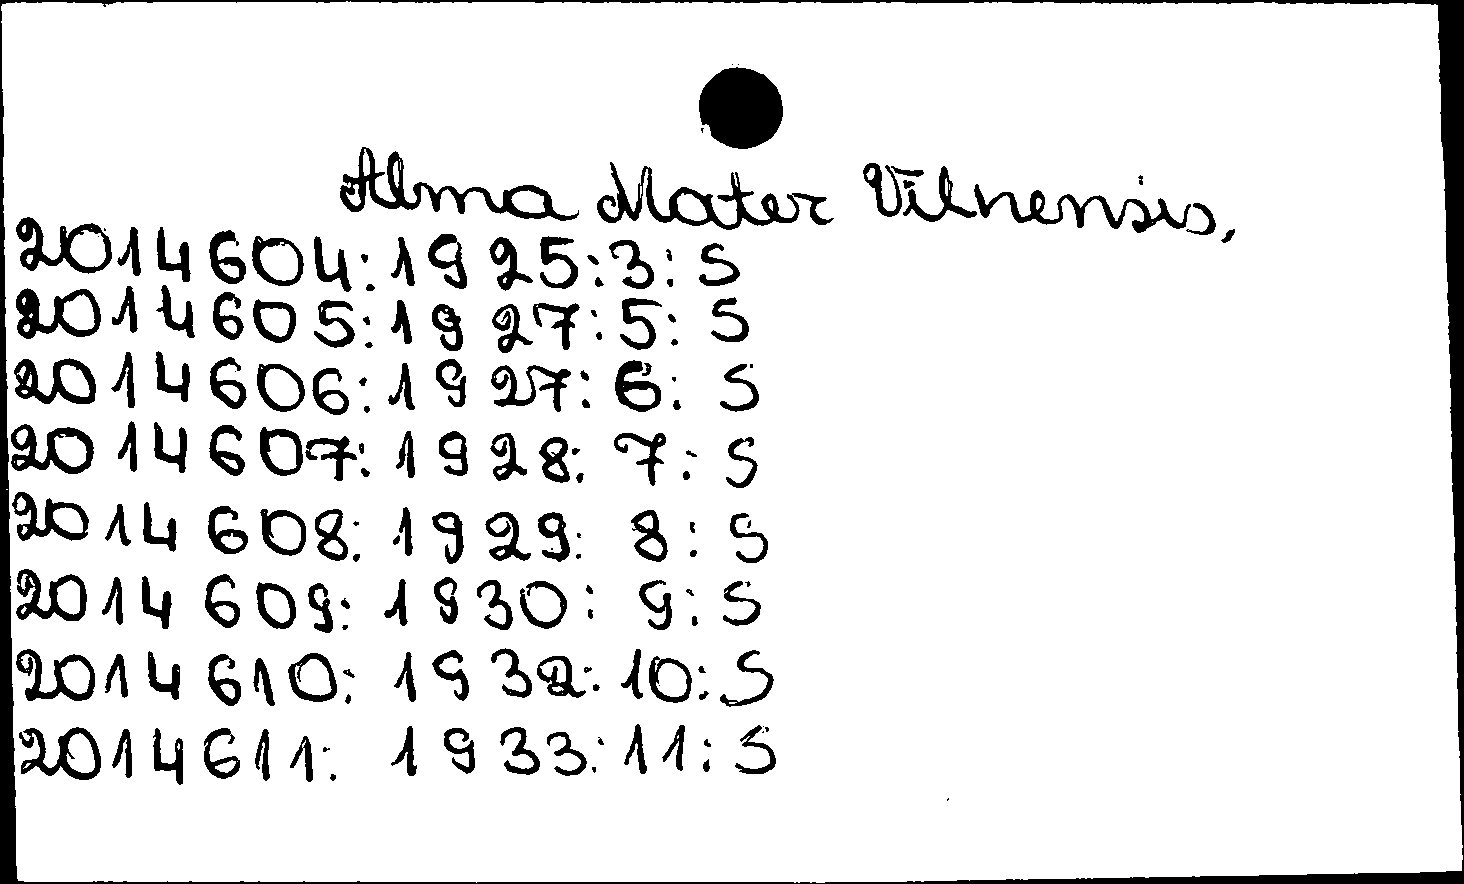 Alma Mater Vilnensis,
2014604:1925:3:S
2014605:1927:5:S
2014606:1927:6:S
2014607:1928:7:S
2014608:1929:8:S
2014609:1930:9:S
2014610:1932:10:S
2014611:1933:11:S